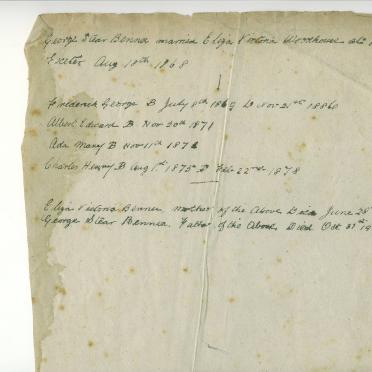 George Stear Benner married Eliza Victoria Woodhouse at
Exeter Aug 18th 1868
Frederick George B July 8th 1869 D Nov 21st
Albert Edward B Nov 20th 1871
Ada Mary B Nov 11th
Charles Henry B Aug 1st 1875 D Feb 22nd 1878
Eliza Victoria Benner mother of the Above Died June 28
George Stear Benner Father of the Above Died Oct 31st 19